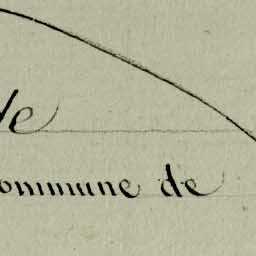 de
ommune de